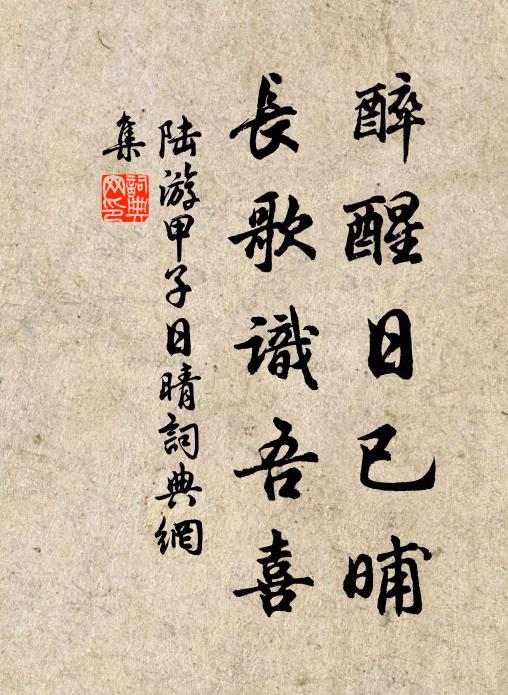 醉醒日已晡
長歌識吾喜
陸游甲子日晴詞典網
集
詞典
网印